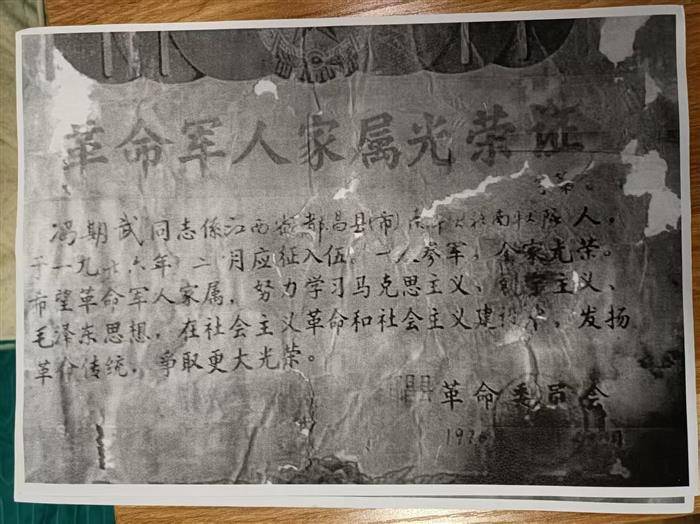 革命军人家属光荣证
字第
冯期武同志係江西省都昌县(市)大社南大队人。
于一九七六年二月应征入伍。一人参军，全家光荣。
希望革命军人家属，努力学习马克思主义、列宁主义、
毛泽东思想，在社会主义革命和社会主义建设中，发扬
革命传统，争取更大光荣。
革命委员会
197 月